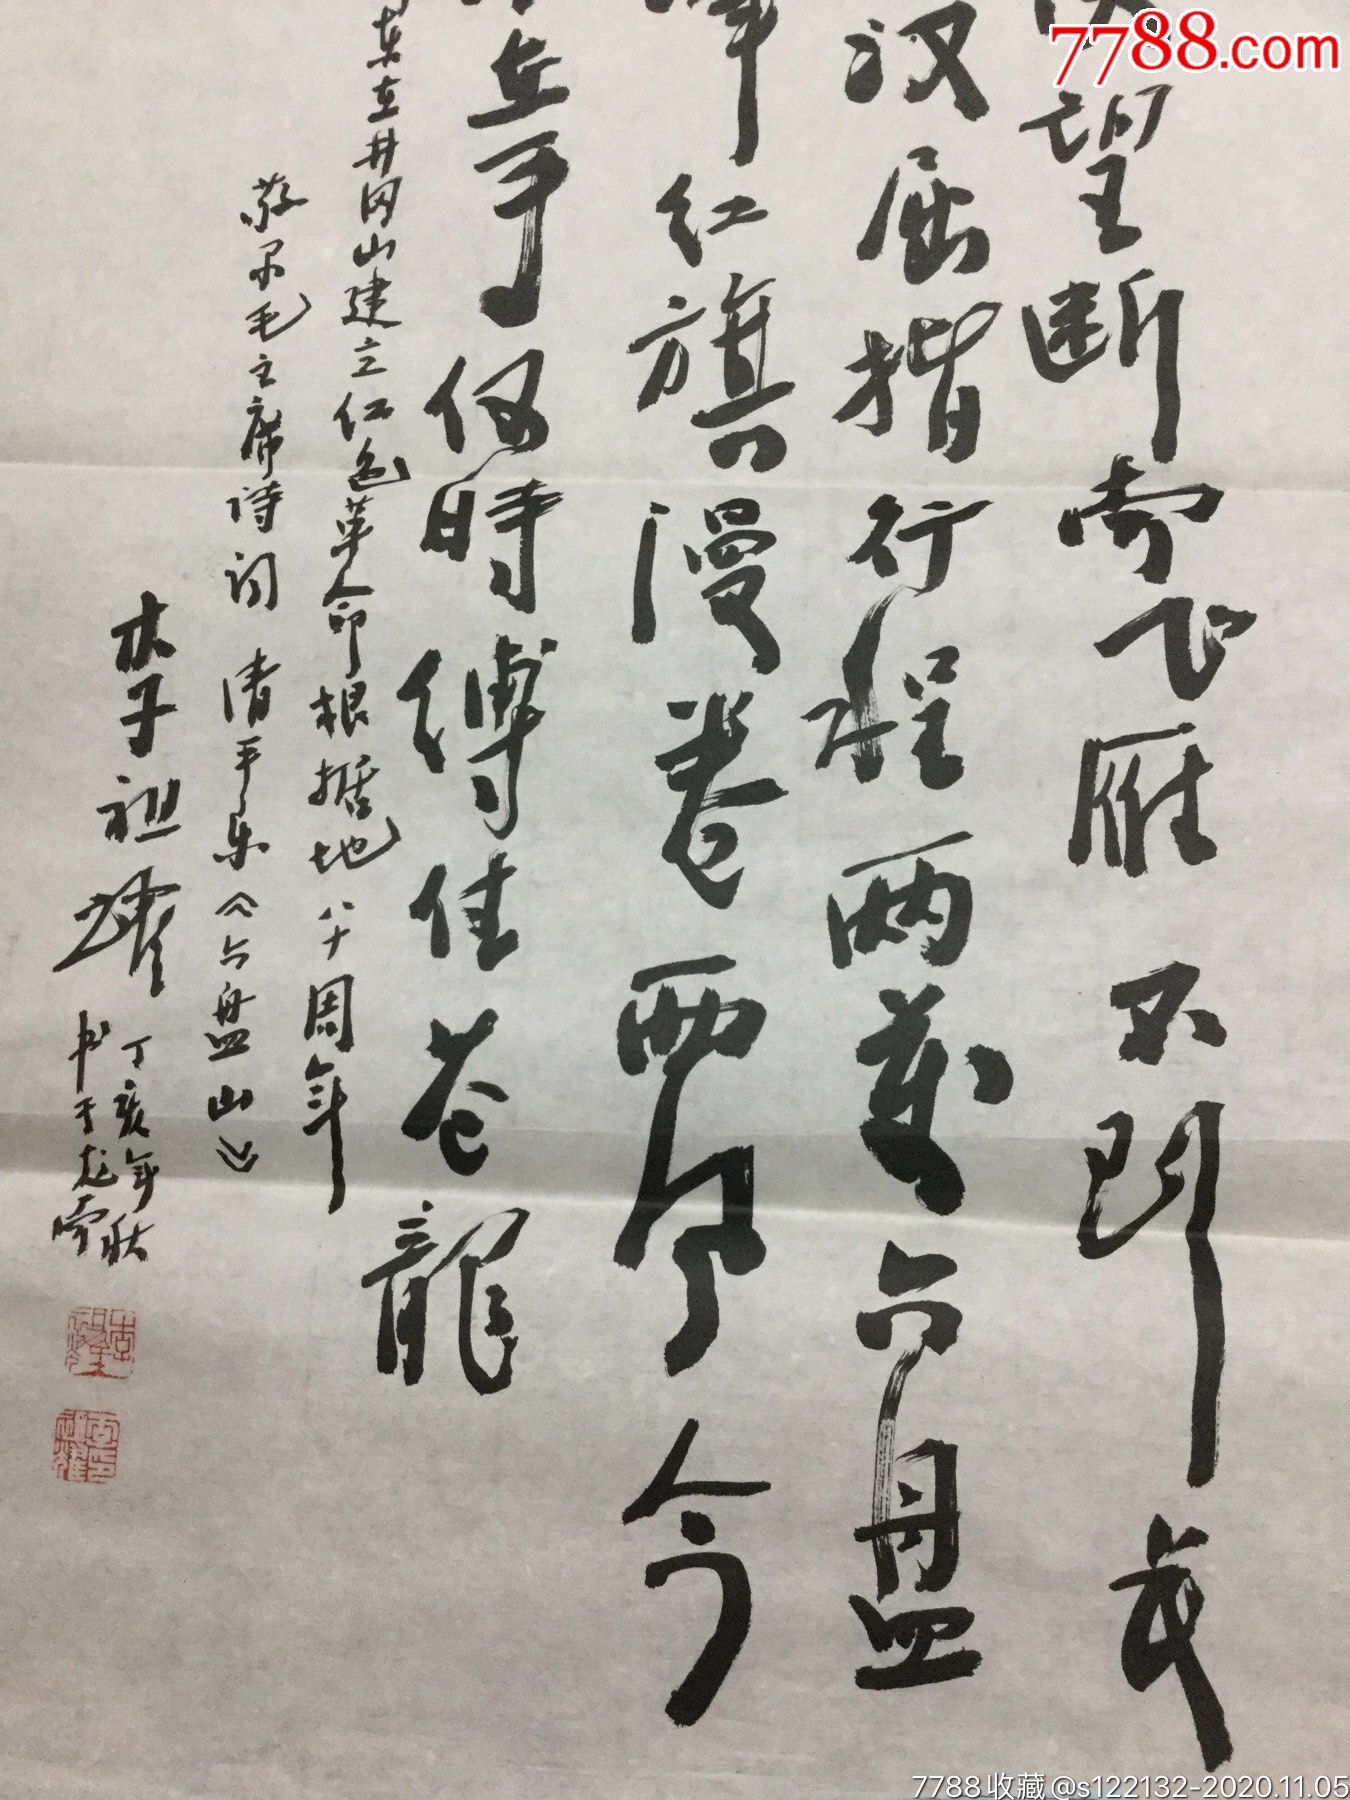 7788.com
望断南飞雁不到长
汉屈指行程两萬六盘
峰红旗漫卷西风今
在手何時缚住苍龍
东在井冈山建立红色革命根据地八十周年
敬录毛主席诗词 清平乐《六盘山》
木子祖耀 丁亥年秋
书于龙
7788收藏@s122132-2020.11.05